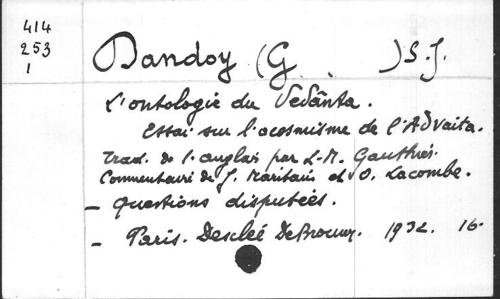 414
253
1
Dandoy (G. ) S.J.
L'ontologie du Vedânta.
Essai sur l'acosmisme de l'Advaita.
Trad. de l'anglais par L-M. Gauthier.
Commentaire de J. Maritain et O. Lacombe.
- Questions disputées.
- Paris. Desclée De Brouwer. 1932. 16°